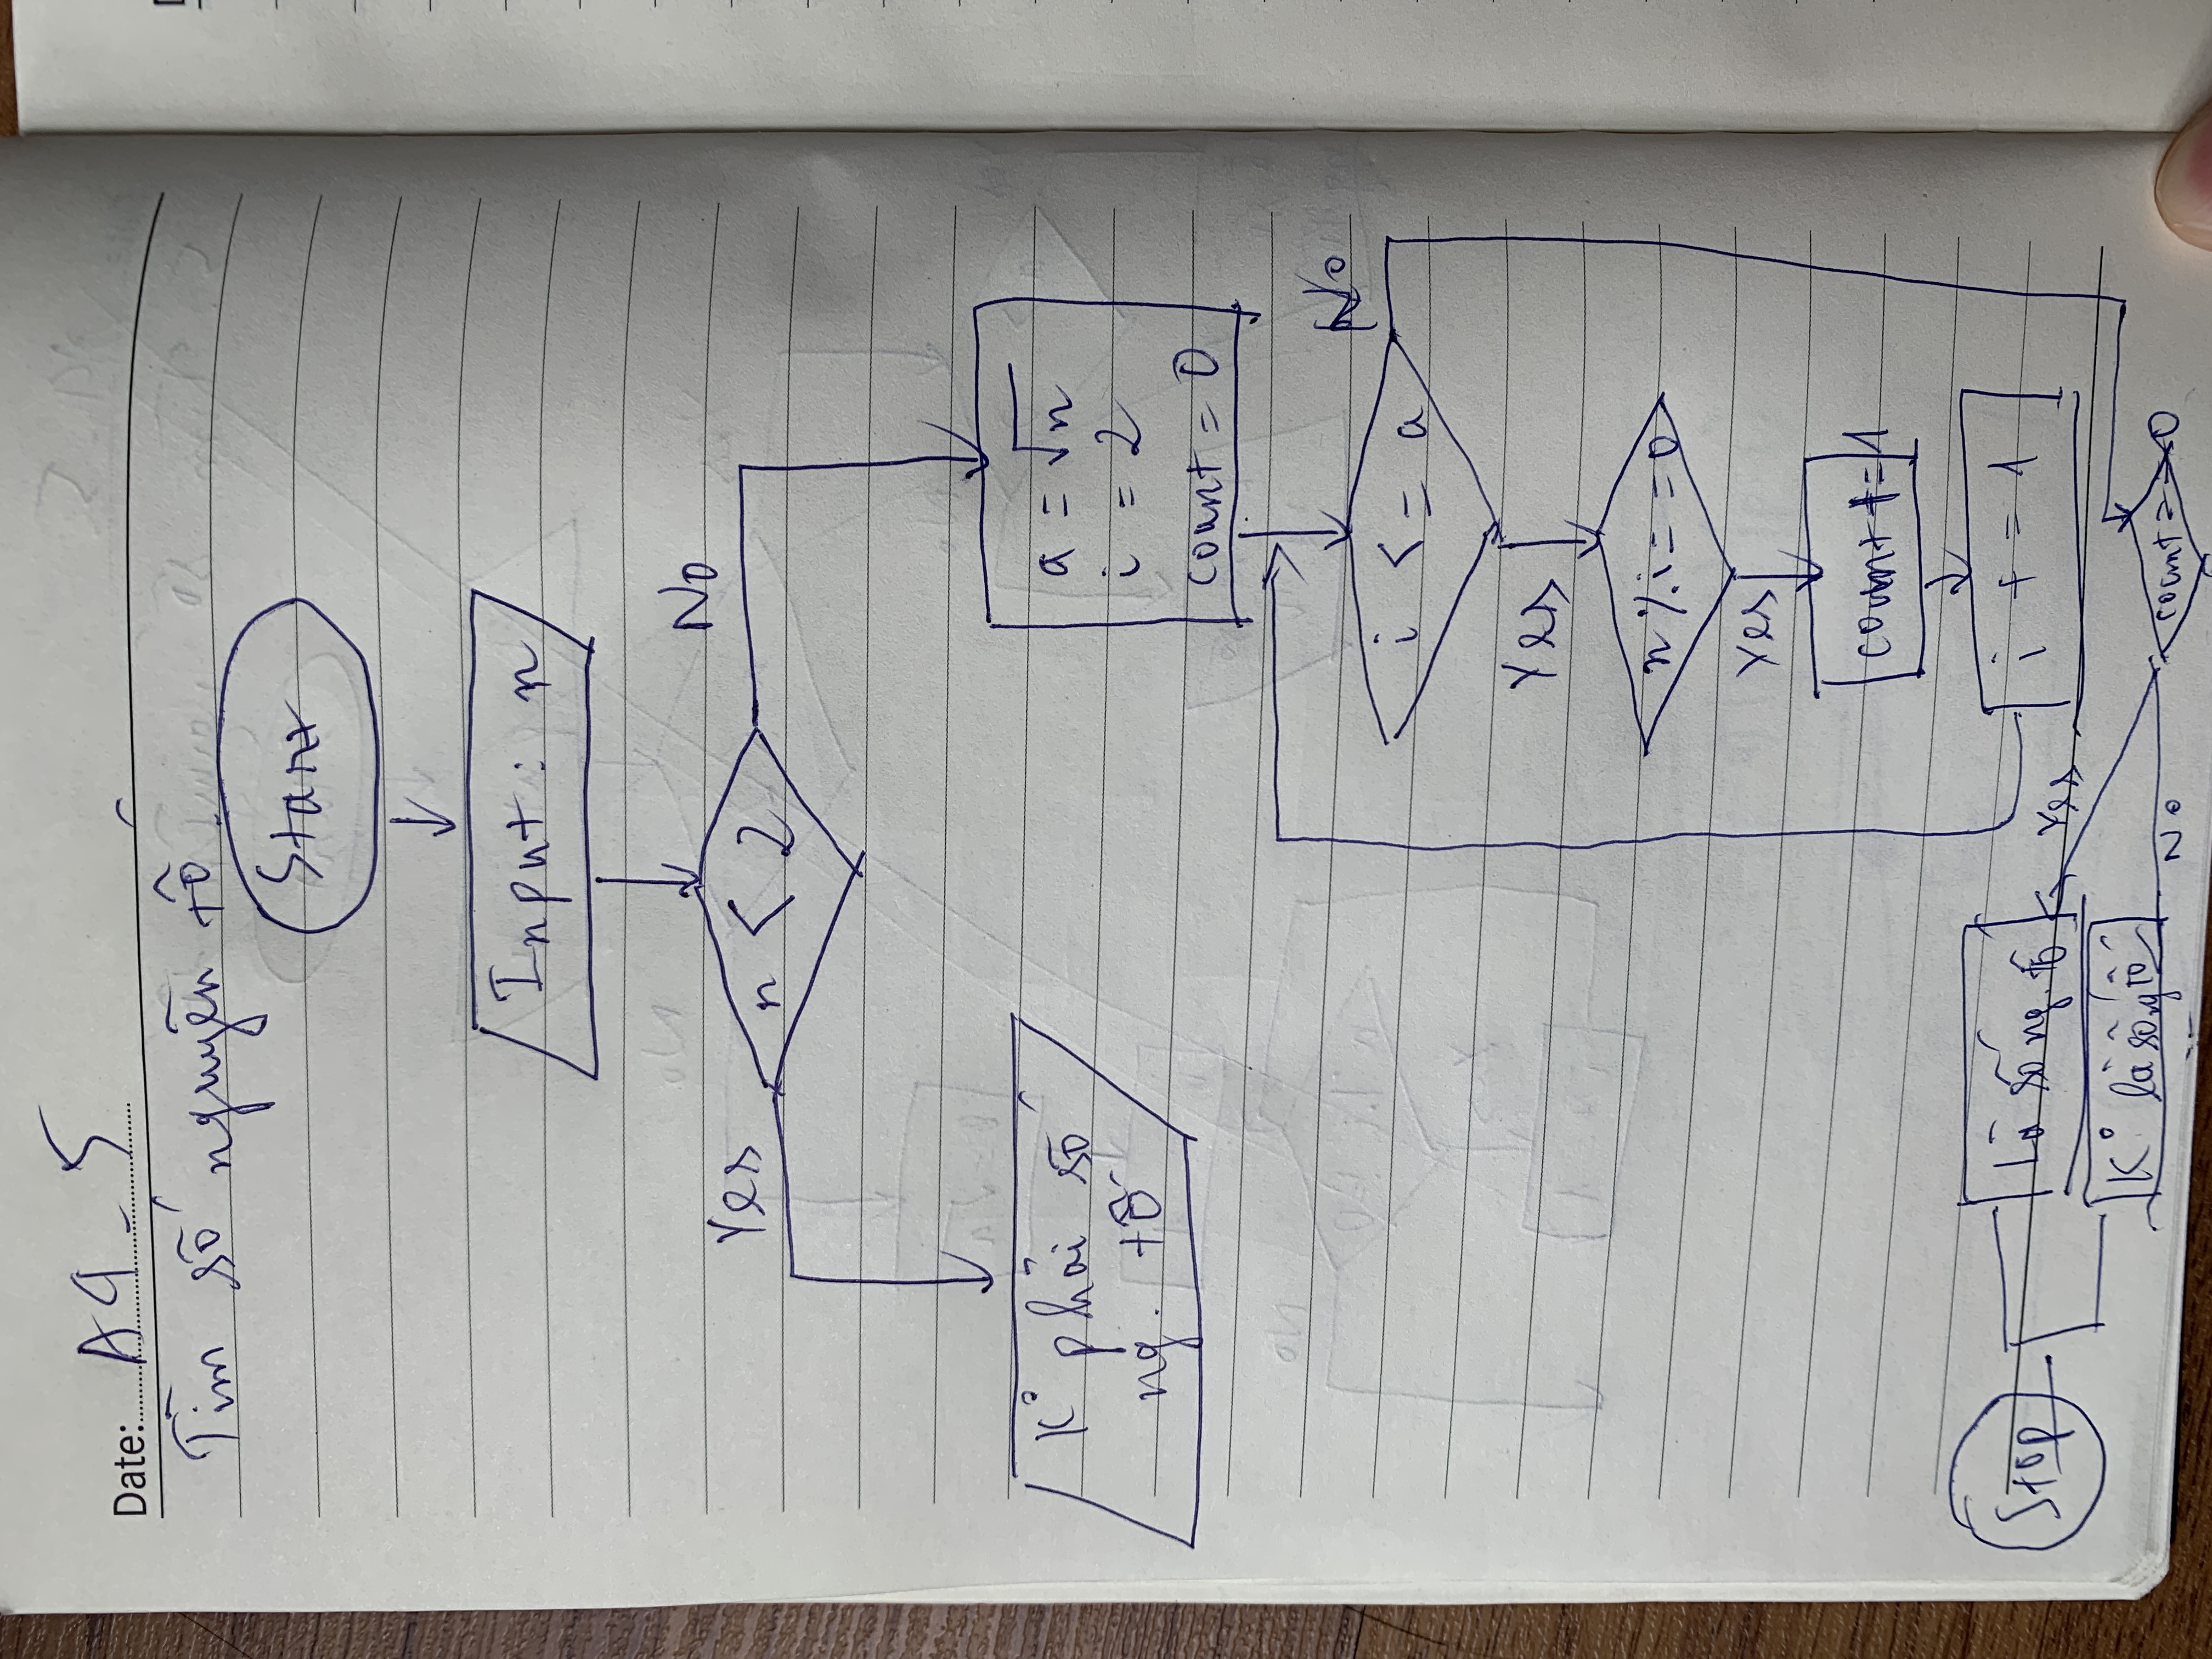 Date: A9 - 5
Tìm số nguyên tố.
Start
Input : n
Yes
n < 2
No
K° phải số
ng. tố
a = √n
i = 2
count = 0
No
i <= a
Yes
n % i == 0
Yes
count += 1
i += 1
Stop
Là số ng. tố
Yes
K° là số ng tố
No
count == 0